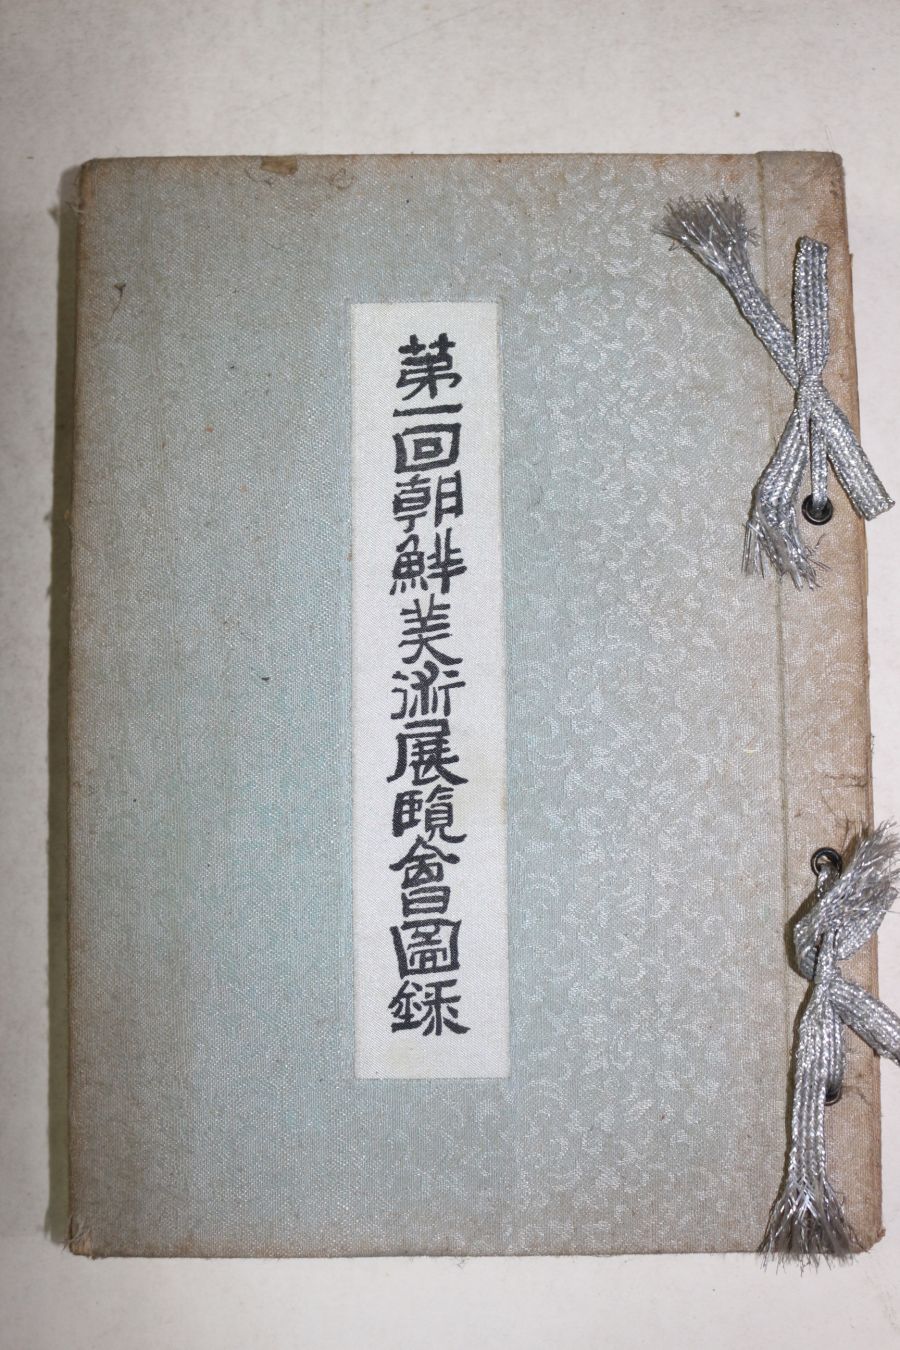 第一回朝鮮美術展覽會圖錄